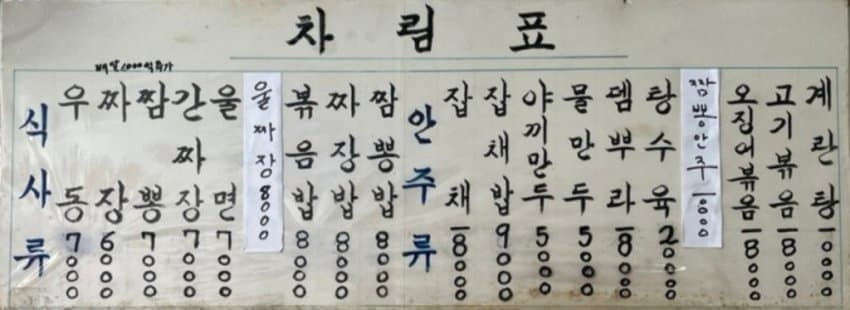 차림표
식사류
우동 7000
짜장 6000
짬뽕 7000
간짜장 7000
울면 7000
울짜장 8000
볶음밥 8000
짜장밥 8000
짬뽕밥 8000
안주류
잡채 18000
잡채밥 9000
야끼만두 5000
물만두 5000
뎀뿌라 18000
탕수육 20000
짬뽕안주 10000
오징어볶음 18000
고기볶음 18000
계란탕 10000